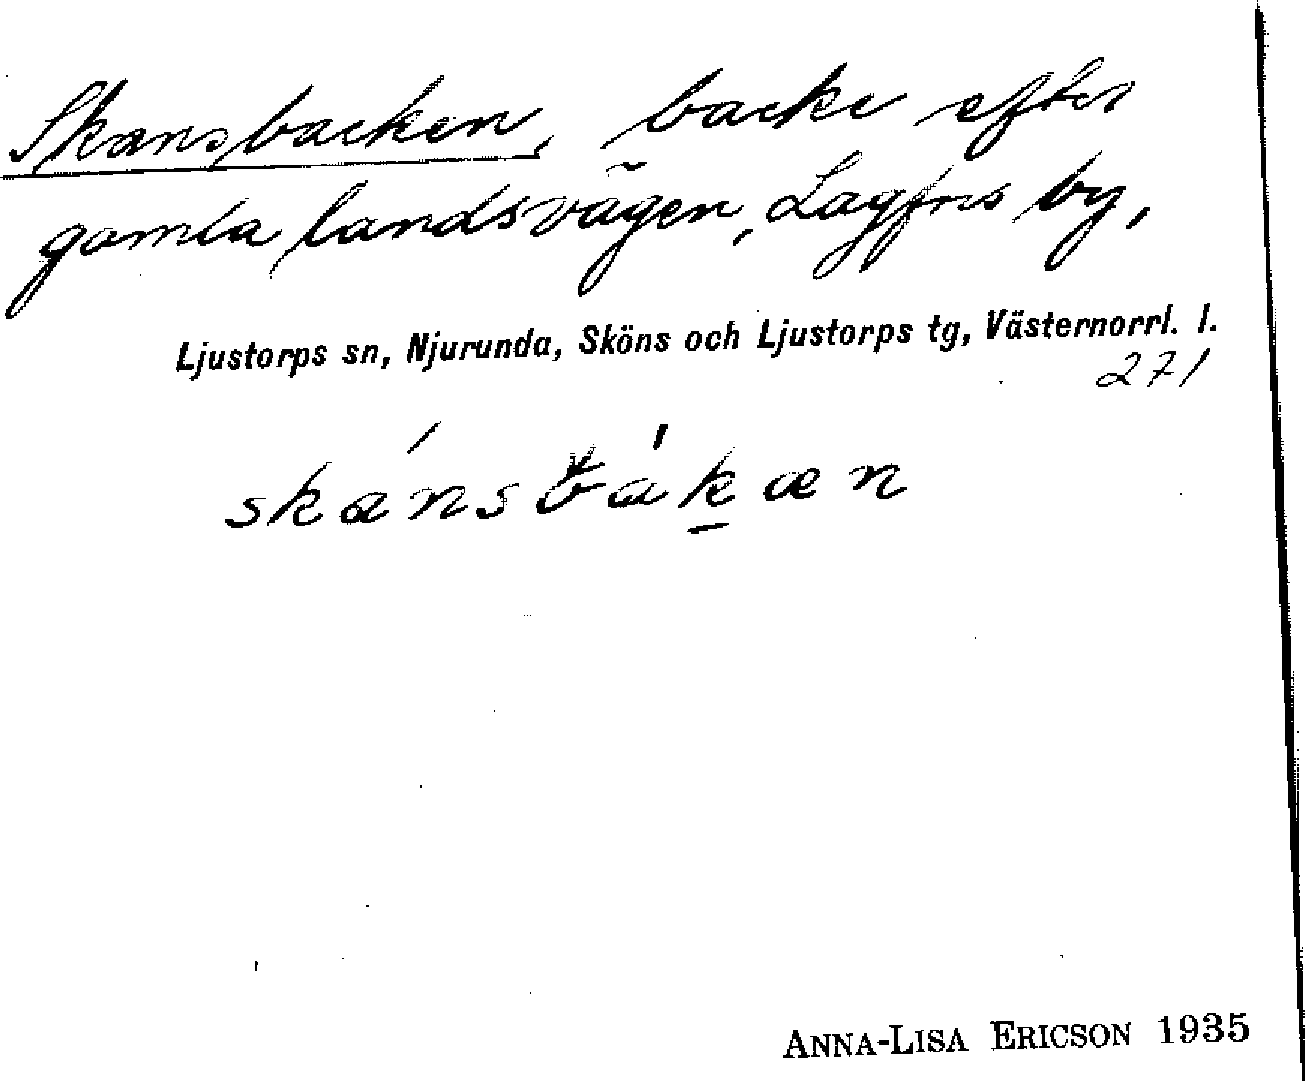 Skansbacken, backe efter
gamla landsvägen, Lagfors by,
Ljustorps sn, Njurunda, Sköns och Ljustorps tg, Västernorrl. l.
271
ANNA-LISA ERICSON 1935